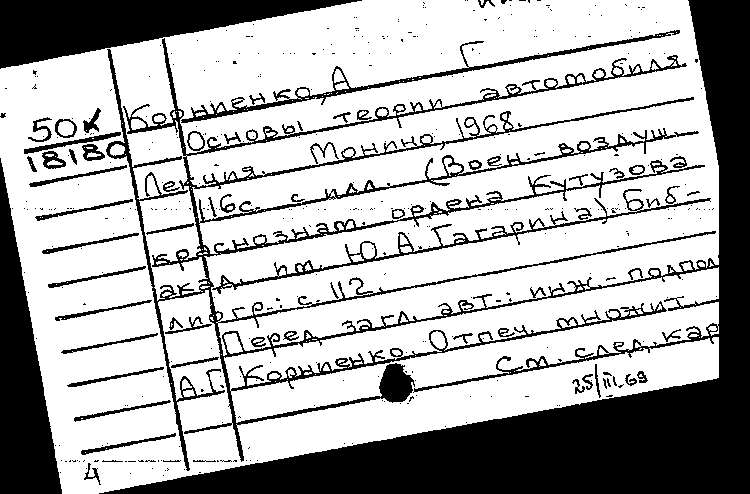 Корниенко, А Г
50К
18180
Основы теории автомобиля.
Лекция. Монино, 1968.
116с. с илл. (Воен.-воздуш.
краснознам. ордена Кутузова
акад. им. Ю.А. Гагарина). Биб-
лиогр.: с. 112.
Перед загл. авт.: инж.-подпол
А.Г. Корниенко. Отпеч. множит.
См. след. кар
25/III.69
4